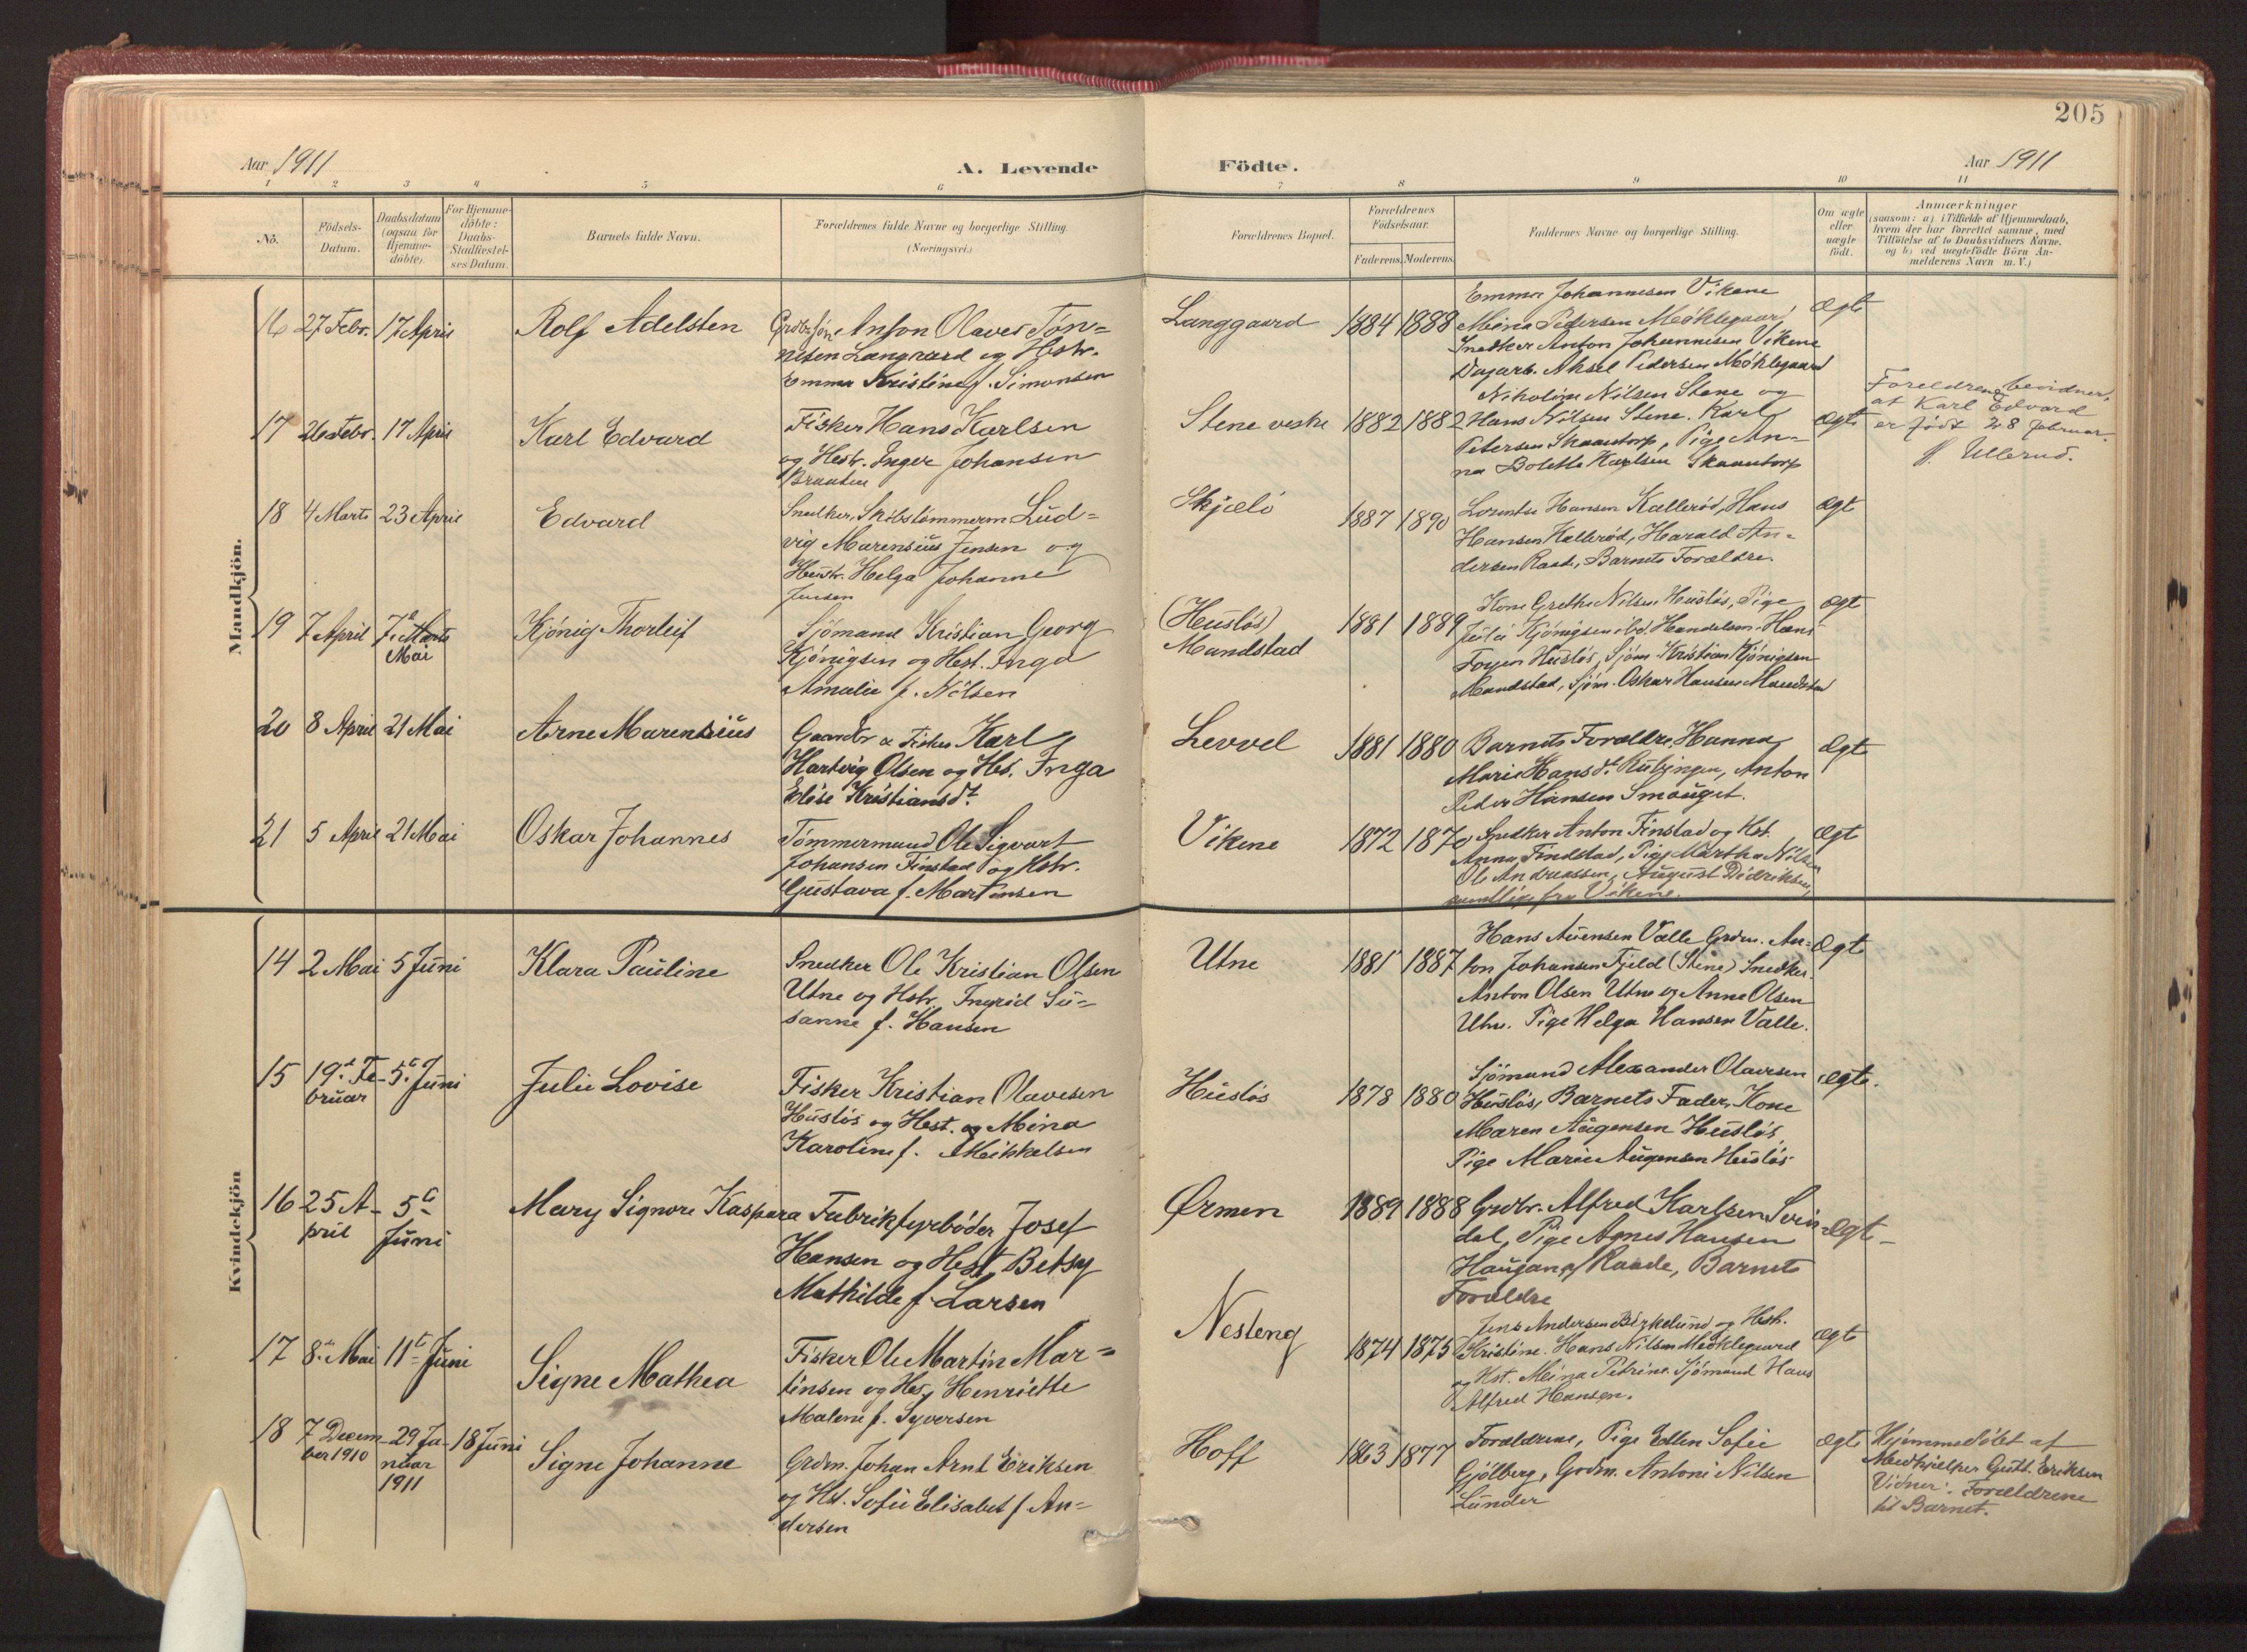 205
Aar 1911
A. Levende Födte.
Aar 1911
1 2 3 4 5 6 7 8 9 10 11
No.
Födsels-
Datum.
Daabsdatum
(ogsaa for
Hjemme-
döbte).
For Hjemme-
döbte:
Daabs-
Stadfæstel-
ses Datum.
Barnets fulde Navn.
Forældrenes fulde Navne og borgerlige Stilling.
(Næringsvei.)
Forældrenes Bopæl.
Forældrenes
Födselsaar.
Faderens. Moderens.
Faddernes Navne og borgerlige Stilling.
Om ægte
eller
uægte
födt.
Anmærkninger
(saasom: a) i Tilfælde af Hjemmedaab,
hvem der har forrettet samme, med
Tilföielse af to Daabsvidners Navne,
og b) ved uægtefödte Börn An-
melderens Navn m. V.)
Mandkjön.
16 27 Febr. 17 April
Rolf Adelsten
Anton Olaves Tön=
nesen Langgaard og Hstr.
Emma Kristine f. Simonsen
Langgaard
1884 1888
Emma Johannesen Vikene
Mina Pedersen Möklegaard
Snedker Anton Johannesen Vikene
Dagarb. Aksel Pedersen Möklegaard
Ægte
17 26 Febr. 17 April
Karl Edvard
Fisker Hans Karlsen
og Hestr. Inger Johansen
Braaten
Stene vestre
1882 1882
Nikoline Nilsen Stene og
Hans Nilsen Stene. Karl
Petersen Skaantorp, Pige An=
na Bolette Karlsen Skaantorp
Ægte
Foreldrene bevidner,
at Karl Edvard
er født 28 februar.
Ullerud.
18 4 Marts 23 April
Edvard
Snedker, Skibstømmerm Lud=
vig Marensius Jensen og
Hustr. Helga Johanne
Jensen
Skjælö
1887 1890
Lorentse Hansen Kallerød, Hans
Hansen Kallerød, Harald An=
dersen Raade, Barnets Forældre.
Ægt
19 7 April 7de Marts
Mai
Kjönig Thorleif
Sjömand Kristian Georg
Kjönigsen og Hest. Inga
Amalie f. Nilsen
(Huslös)
Mandstad
1881 1889
Kone Grethe Nilsen Huslös, Pige
Julie Kjönigsen ibd. Handelsm. Hans
Foyen Huslös, Sjöm. Kristian Kjönigsen
Mandstad, Sjöm. Oskar Hansen Mandstad
Ægt
20 8 April 21 Mai
Arne Marensius
Gaardbr & Fisker Karl
Hartvig Olsen og Hs. Inga
Elise Kristiansdt.
Levvel
1881 1880
Barnets Forældre, Hanna
Marie Hansdt. Anton
Peder Hansen Smauget.
Ægte
21 5 April 21 Mai
Oskar Johannes
Tömmermand Ole Sigvart
Johansen Finstad og Hstr.
Gustava f. Martinsen
Vikene
1872 1870
Snedker Anton Finstad og Hst.
Anna Findstad, Pige Martha Nilsen
Ole Andreassen, August Didriksen,
samtlige fra Vikene.
Ægte
Kvindekjön
14 2 Mai 5 Juni
Klara Pauline
Snedker Ole Kristian Olsen
Utne og Hstr. Ingrid Su=
sanne f. Hansen
Utne
1881 1887
Hans Valle Grdm. An=
ton Johansen Fjeld (Stene) Snedker
Anton Olsen Utne og Anne Olsen
Utne. Pige Helga Hansen Valle.
Ægte
15 19de Fe-
bruar
5te Juni
Julie Lovise
Fisker Kristian Olavesen
Huslös og Hest. og Mina
Karoline f. Mikkelsen
Huslös
1878 1880
Sjömand Alexander Olavesen
Huslös, Barnets Fader, Kone
Maren Augensen Huslös
Pige Marie Augensen Huslös
Ægte.
16 25 A-
pril
5te
Juni
Mary Signore Kaspara
Fabrikfyrböder Josef
Hansen og Hest. Betsy
Mathilde f. Larsen
Ørmen
1889 1888
Grdbr. Alfred Karlsen Svin=
dal, Pige Agnes Hansen
Haugang Raade, Barnets
Forældre
Ægte
17 8de Mai 11te Juni
Signe Mathea
Fisker Ole Martin Mar=
tinsen og Hes. Henriette
Malene f. Syversen
Nesleng
1874 1875
Jens Andersen Birkelund og Hstr.
Kristine. Hans Nilsen Möklegaard
og Hst. Mina Petrine. Sjömand Hans
Alfred Hansen.
Ægte
18 7 Decem-
ber 1910
29 Ja-
nuar
1911
18 Juni
Signe Johanne
Grdm. Johan Arnt Eriksen
og Hst. Sofie Elisabet f. An=
dersen
Hoff
1863 1877
Forældrene, Pige Ellen Sofie
Gjölberg, Grdm. Antoni Nilsen
Lunder
Ægte
Hjemmedöbt af
Medhjelper Gutt. Eriksen
Vidner: Forældrene
til Barnet.